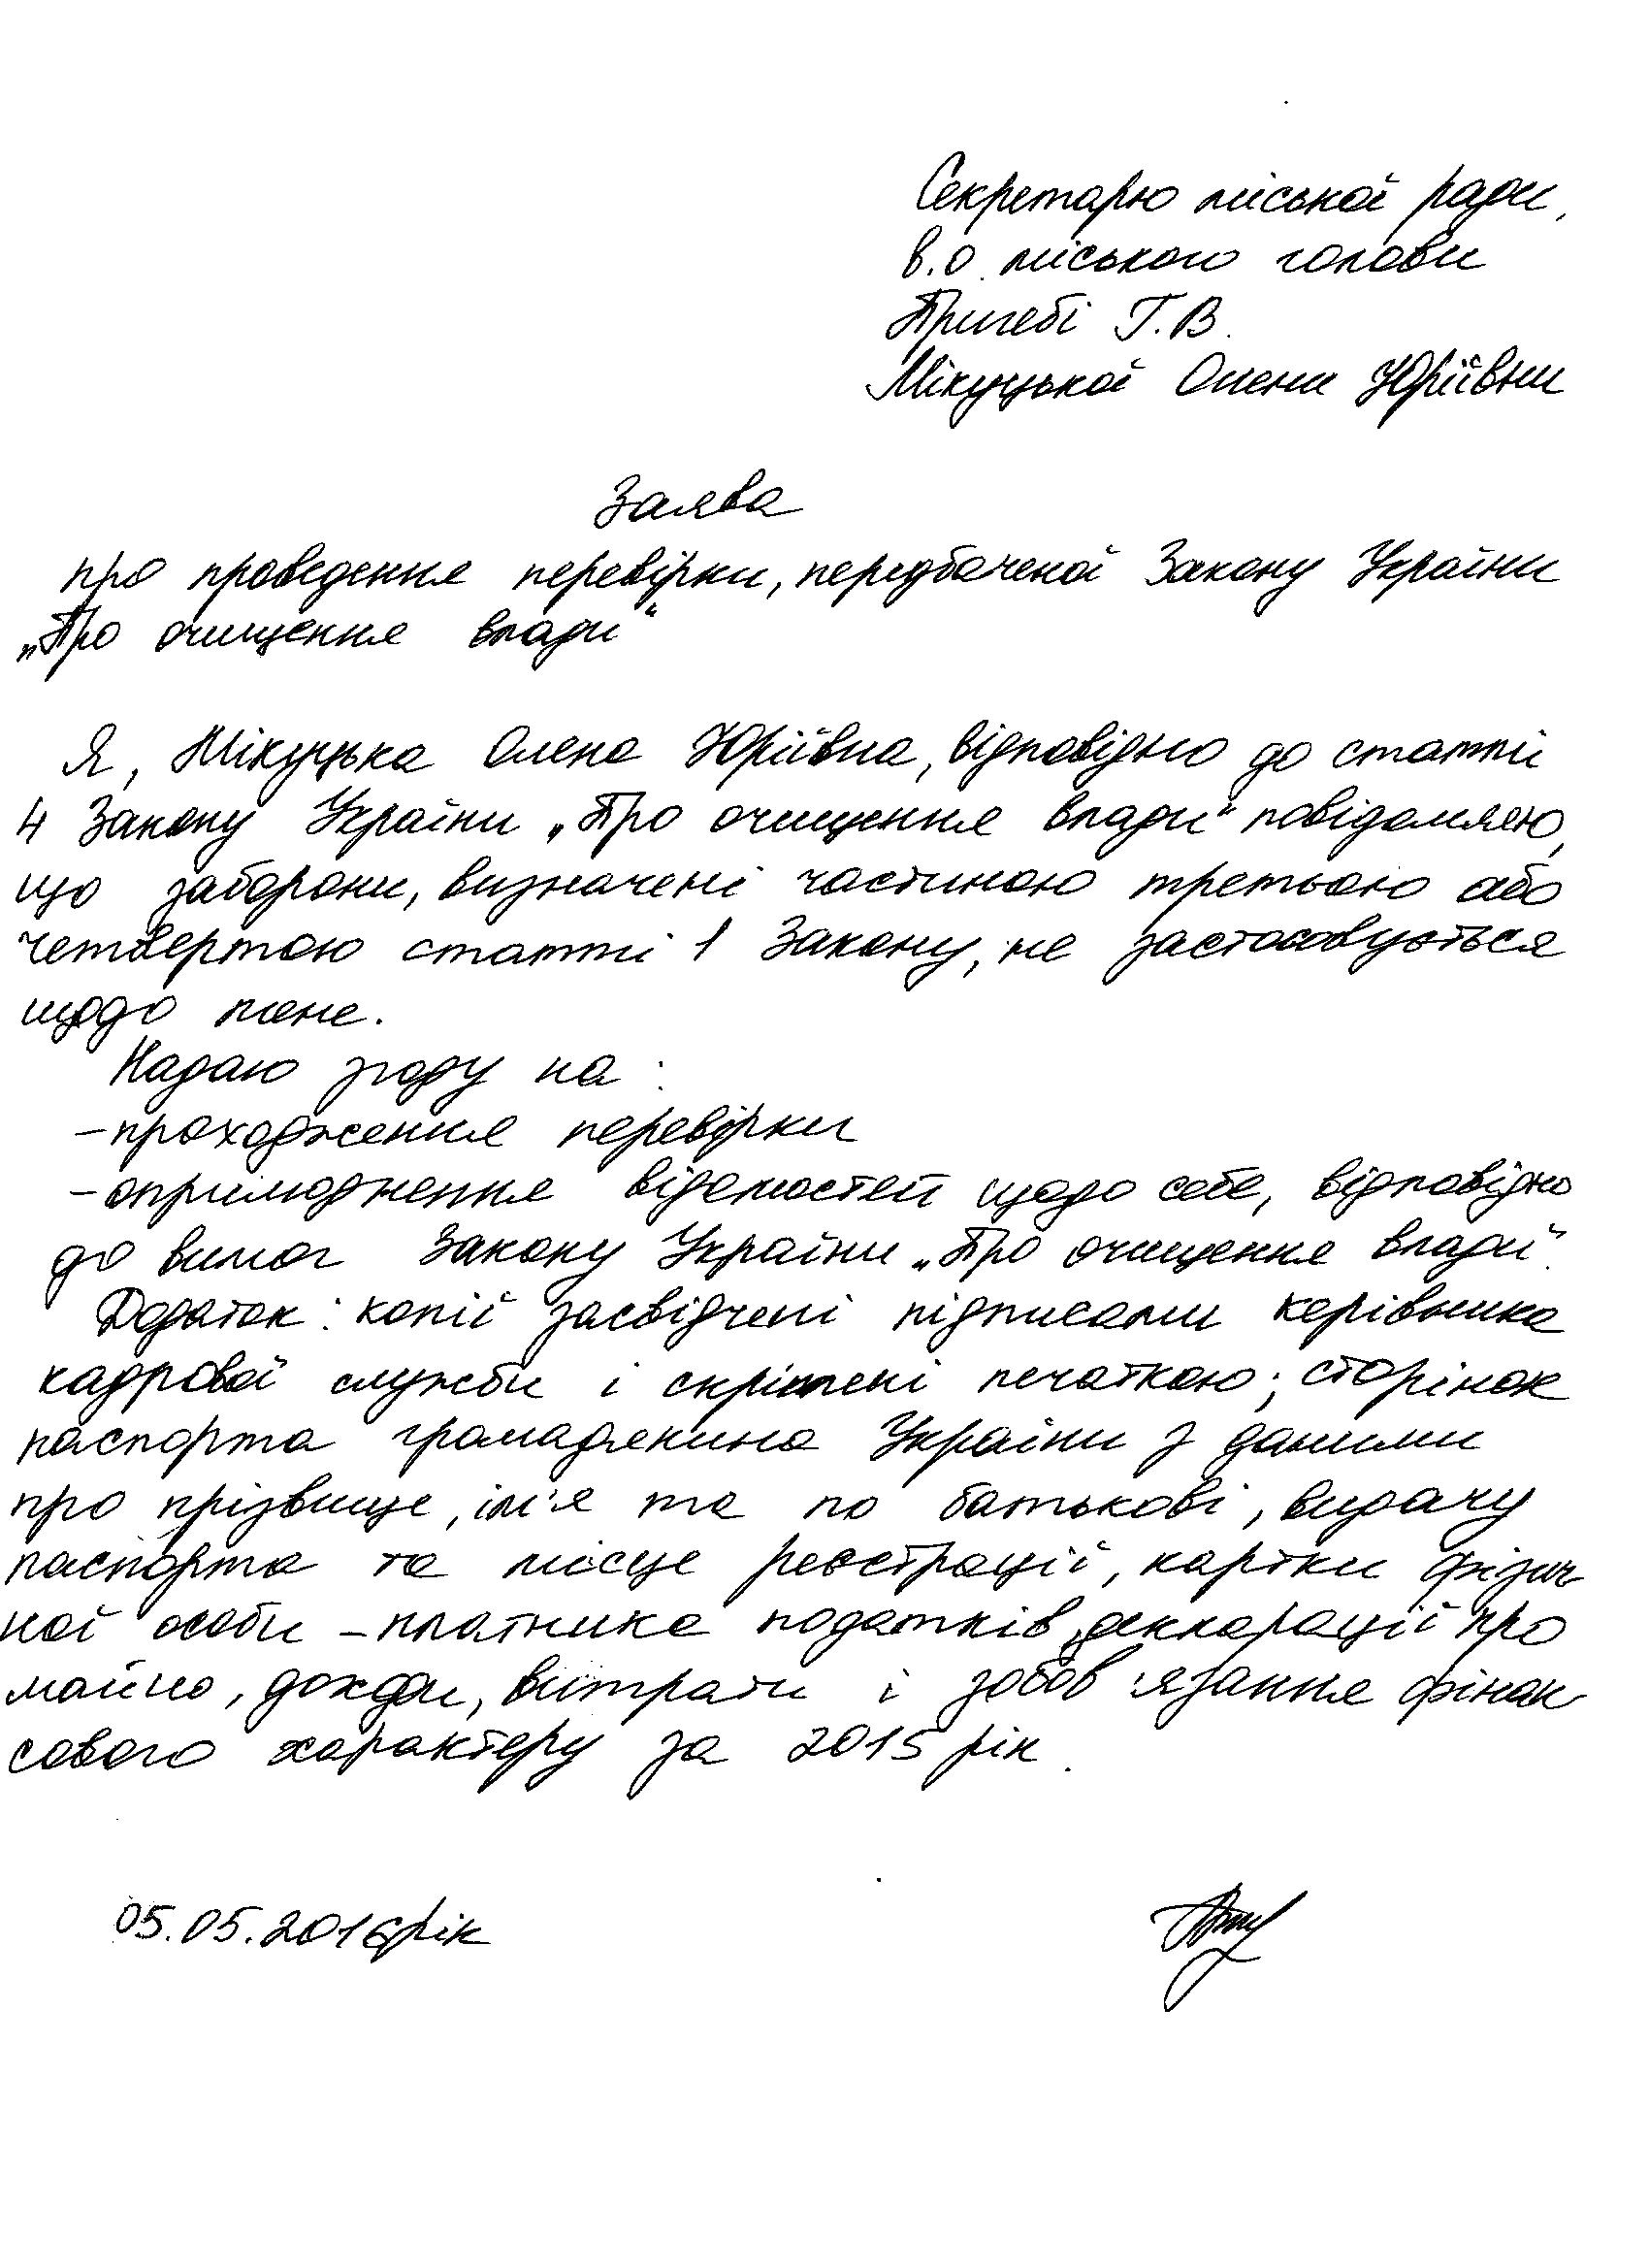 Секретарю міської ради,
в.о. міського голови
Пригебі Г.В.
Мікуцької Олени Юріївни
Заява
про проведення перевірки, передбаченої Закону України
„Про очищення влади“
Я, Мікуцька Олена Юріївна, відповідно до статті
4 Закону України „Про очищення влади“ повідомляю,
що заборони, визначені частиною третьою або
четвертою статті 1 Закону, не застосовується
щодо мене.
Надаю згоду на:
-проходження перевірки
-оприлюдження відомостей щодо себе, відповідно
до вимог Закону України „Про очищення влади“.
Додаток: копії засвідчені підписами керівника
кадрової служби і скріплені печаткою; сторінок
паспорта громадянина України з даними
про прізвище, ім'я та по батькові, видачу
паспорта та місце реєстрації, картки фізич
ної особи -платника податків, декларації про
майно, доходи, витрати і зобов'язання фінан
сового характеру за 2015 рік.
05.05.2016рік